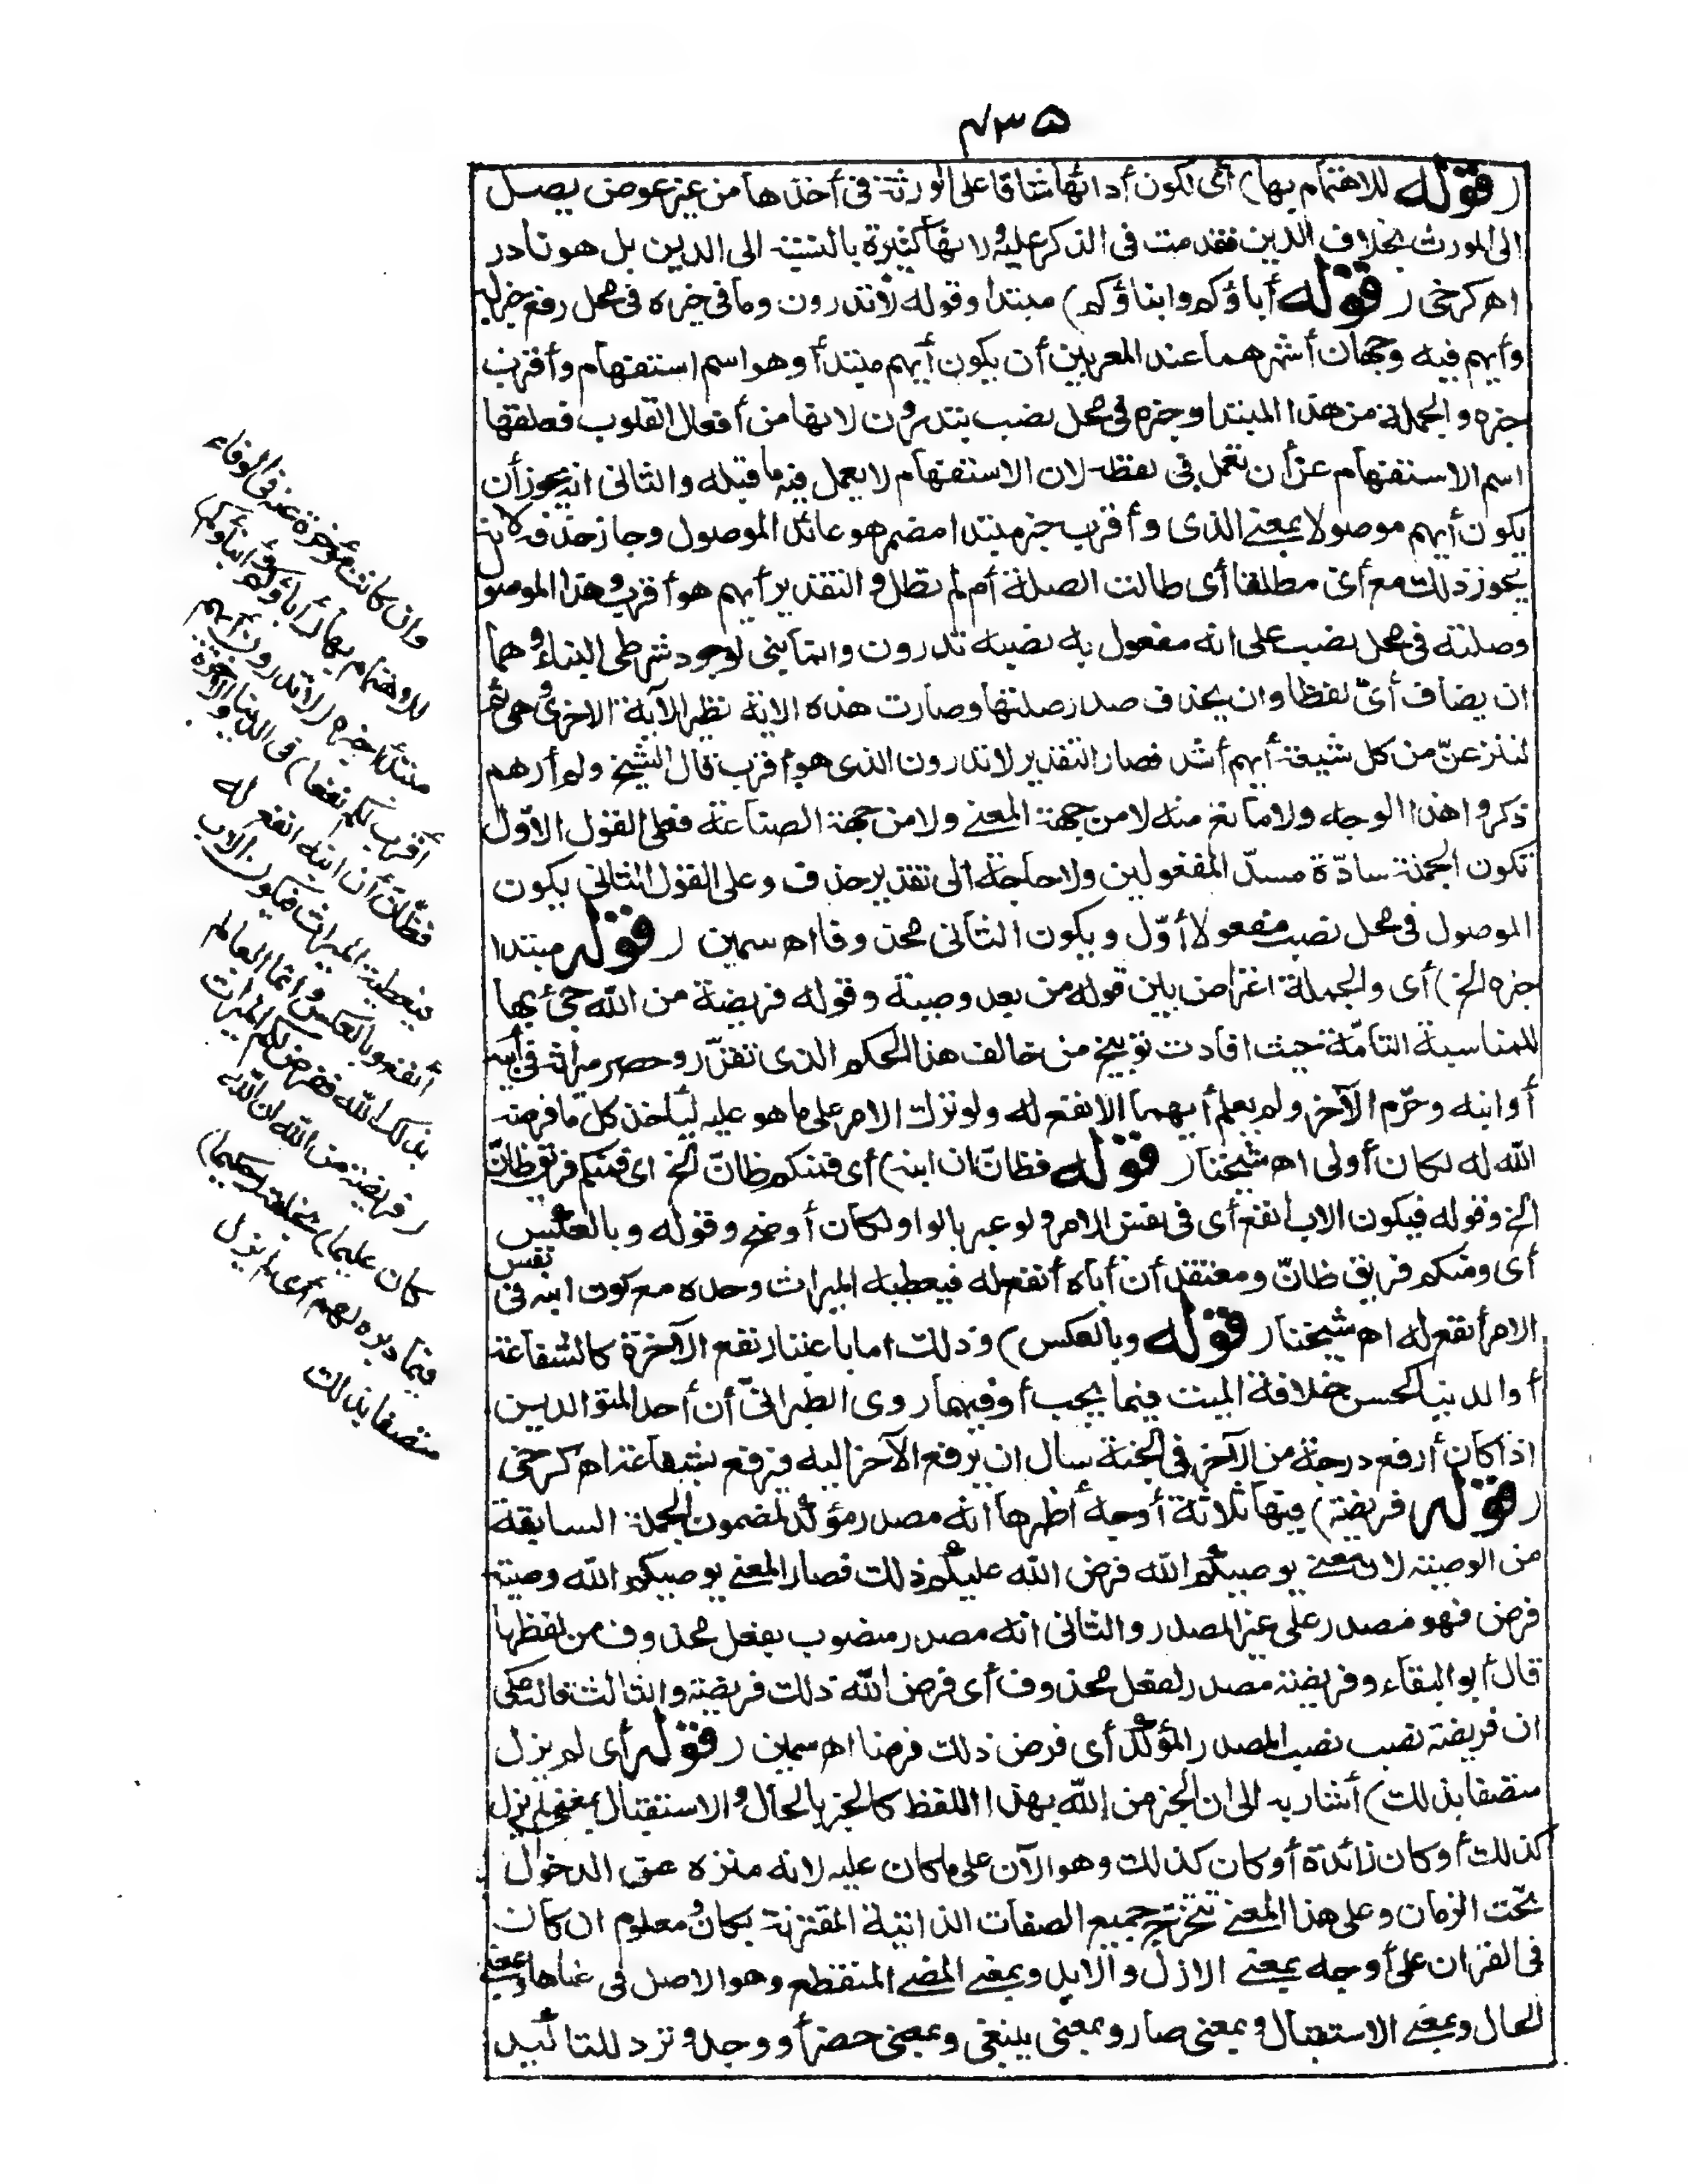 ٤٣٥
(قوله للاهتمام بها) أى لكون أدائها شاقا على الورثة فى أخذها من غير عوض يصل
الى المورث بخلاف الدين فقدمت فى الذكر عليه ولانها كثيرة بالنسبة الى الدين بل هو نادر
اهـ كرخى (قوله أباؤكم وابناؤكم) مبتدا وقوله لا تدرون وما فى خبره فى محل رفع خبر له
وأيهم فيه وجهان أشهرهما عند المعربين أن يكون أيهم مبتدأ وهو اسم استفهام وأقرب
خبره والجملة من هذا المبتدا وخبره فى محل نصب بتدرون لانها من أفعال القلوب فعلقها
اسم الاستفهام عن أن تعمل فى لفظه لان الاستفهام لا يعمل فيه ما قبله والثانى انه يجوز أن
يكون أيهم موصولا بمعنى الذى وأقرب خبر مبتدا مضمر هو عائد الموصول وجاز حذفه لانه
يجوز ذلك مع أى مطلقا أى طالت الصلة أم لم تطل والتقدير أيهم هو أقرب وهذا الموصول
وصلته فى محل نصب على انه مفعول به نصبه تدرون وانما بنى لوجود شرطى البناء وهما
ان يضاف أىّ لفظا وان يحذف صدر صلتها وصارت هذه الاية نظير الآية الاخرى وهى ثم
لننزعنّ من كل شيعة أيهم أشد فصار التقدير لا تدرون الذى هو أقرب قال الشيخ ولم أرهم
ذكروا هذا الوجه ولا مانع منه لا من جهة المعنى ولا من جهة الصناعة فعلى القول الاوّل
تكون الجملة سادّة مسدّ المفعولين ولا حاجة الى تقدير حذف وعلى القول الثانى يكون
الموصول فى محل نصب مفعولا أوّل ويكون الثانى محذوفا اهـ سمين (قوله مبتدا
خبره الخ) أى والجملة اعتراض بين قوله من بعد وصية وقوله فريضة من الله جئ بها
للمناسبة التامّة حيث افادت توبيخ من خالف هذا الحكم الذى تقرّر وحصر ميراثه فى أبيه
أو ابنه وحرّم الآخر ولم يعلم أيهما الانفع له ولو ترك الامر على ما هو عليه ليأخذ كل ما فرضه
الله له لكان أولى اهـ شيخنا (قوله فظانّ ان ابنه) أى فمنكم ظانّ الخ اى فمنكم فريق ظانّ
الخ وقوله فيكون الاب انفع أى فى نفس الامر ولو عبر بالواو لكان أوضح وقوله وبالعكس
أى ومنكم فريق ظانّ ومعتقد أن أباه أنفع له فيعطيه الميراث وحده مع كون ابنه فى نفس
الامر أنفع له اهـ شيخنا (قوله وبالعكس) وذلك اما باعتبار نفع الآخرة كالشفاعة
أو الدنيا كحسن خلافة الميت فيما يجب أو فيهما روى الطبرانىّ أن أحد المتوالدين
اذا كان أرفع درجة من الآخر فى الجنة سال ان يرفع الآخر اليه فيرفع بشفاعته اهـ كرخى
(قوله فريضة) فيها ثلاثة أوجه أظهرها انه مصدر مؤكد لمضمون الجملة السابقة
من الوصية لان معنى يوصيكم الله فرض الله عليكم ذلك فصار المعنى يوصيكم الله وصية
فرض فهو مصدر على غير المصدر والثانى انه مصدر منصوب بفعل محذوف من لفظها
قال أبو البقاء وفريضة مصدر لفعل محذوف أى فرض الله ذلك فريضة والثالث قاله مكى
ان فريضة نصب نصب المصدر المؤكد أى فرض ذلك فرضا اهـ سمين (قوله أى لم يزل
متصفا بذلك) أشار به الى ان الخبر من الله بهذا اللفظ كالخبر بالحال والاستقبال بمعنى لم يزل
كذلك أو كان زائدة أو كان كذلك وهو الآن على ما كان عليه لانه منزه عن الدخول
تحت الزمان وعلى هذا المعنى تتخرّج جميع الصفات الذاتية المقترنة بكان ومعلوم ان كان
فى القران على أوجه بمعنى الازل والابد وبمعنى المضى المنقطع وهو الاصل فى معناها وبمعنى
الحال وبمعنى الاستقبال وبمعنى صار وبمعنى ينبغى وبمعنى حضر أو وجد وترد للتاكيد
وان كانت مؤخرة عنه فى الوفاء
للاهتمام بها (أباؤكم وابناؤكم)
مبتدأ خبره (لا تدرون أيهم
أقرب لكم نفعا) فى الدنيا والآخرة
فظانّ أن ابنه انفع له
فيعطيه الميراث فيكون الاب
أنفع وبالعكس وانما العالم
بذلك الله ففرض لكم الميراث
(فريضة من الله ان الله
كان عليما) بخلقه (حكيما)
فيما دبره لهم أى لم يزل
متصفا بذلك